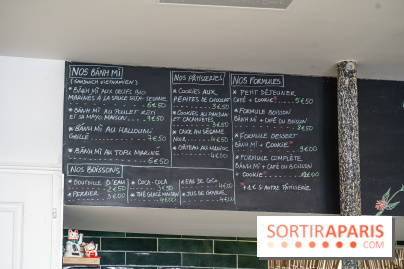 NOS BÁNH MÌ
(SANDWICH VIETNAMIEN)
* BÁNH MÌ AUX OEUFS BIO
MARINÉS À LA SAUCE SOJA-SESAME
6€50
* BÁNH MÌ AU POULET RÔTI
ET SA MAYO MAISON
7€50
* BÁNH MÌ AU HALLOUMI
GRILLÉ
7€50
* BÁNH MÌ AU TOFU MARINÉ
6€50
NOS BOISSONS
* BOUTEILLE D'EAU
2€50
* PERRIER
3€00
* COCA-COLA
3€50
* THÉ GLACÉ MAISON
4€00
* EAU DE COCO
4€00
* JUS DE
4€00
NOS PÂTISSERIES
* COOKIES AUX
PÉPITES DE CHOCOLAT
3€50
* COOKIES AU PANDAN
ET CACAHUÈTES
3€50
* CAKE AU SÉSAME
NOIR
4€50
* GÂTEAU AU MANIOC
4€50
NOS FORMULES
* PETIT DÉJEUNER
CAFÉ + COOKIE
5€50
* FORMULE BOISSON
BÁNH MÌ + CAFÉ OU BOISSON
8€50
* FORMULE DESSERT
BÁNH MÌ + COOKIE
9€00
* FORMULE COMPLÈTE
BÁNH MÌ + CAFÉ OU BOISSON
+ COOKIE
12€00
* +1€ SI AUTRE PÂTISSERIE
SORTIRAPARIS
.COM